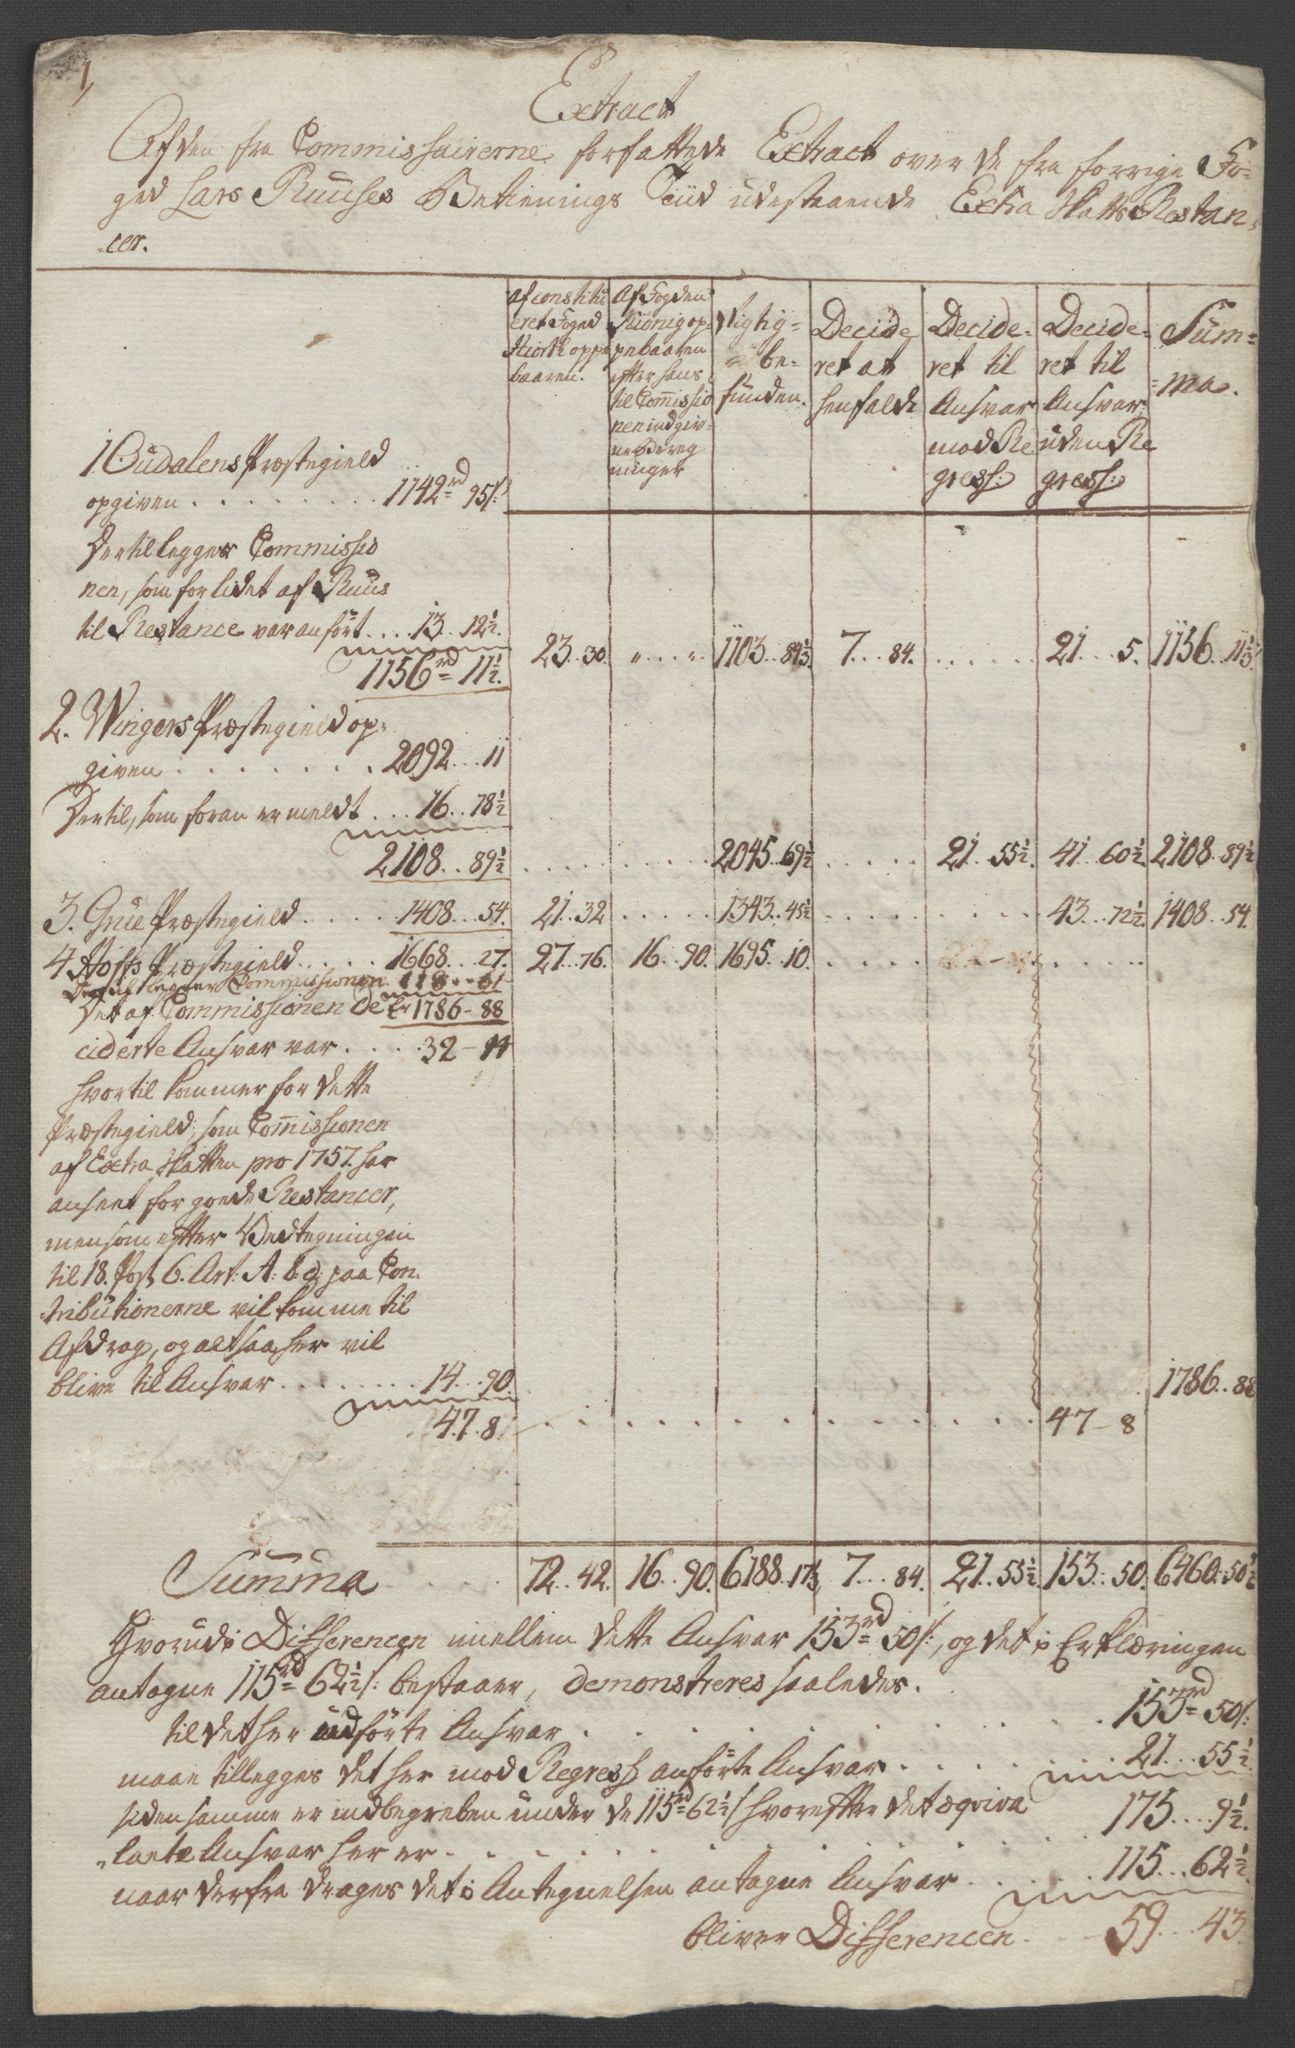 1,
Extract
Af den fra Commissairerne forfattede Extract over de fra forrige Fo-
ged Lars Ruuses Betienings Tiid udestaaende Extra Skatts Restan-
cer.
af constitu
eret Foged
Hiort oppe
baaren.
Af Fogden
König op-
pebaaren
efter hans
til Commissio
nen indgiv-
ne Bereg
ninger
Rigtig
be-
funden.
Decide
ret at
henfalde
Decide-
ret til
Ansvar
mod Re
gress:
Decide-
ret til
Ansvar
uden Re
gress:
Sum-
ma.
1 Oudalens Præstegield
opgiven . . . . . . . . 1142rd 95s:
Dertil legger Commissio
nen, som for lidet af Ruus
til Restance var anført . . . 13 . 12½.
1156rd 11½. 23 . . 30. " . . . " . 1103 . . 84⅓ 7 . . . 84. . . . . . . 21 . . . 5. 1156 . . 11½
2. Wingers Præstegield op-
given . . . . . . . . 2092 . . . 11
Dertil, som foran er meldt . . . 16 . . 78½
2108 . . 89½ . . . . . . . . . 2045 . 69½ . . . . . 21 . 55½. 41 . 60½ 2108 . 89½
3. Grue Præstegield . . . . . 1408 . . . 54. 21 . . 32 . . . . . 1343 . . 45½ . . . . . . . . . 43 . . 72½ 1408 . . 54
4 Hoffs Præstegield . . . . . 1668 . . 27. 27 . . 76. 16 . . 90. 1695 . 10. . . . . . . . . . .
Dertil legger Commissionen 118 . . 61
er 1786 - 88
Det af Commissionen de
ciderte Ansvar var . . . . 32 - 14
hvortil kommer for dette
Præstegield, som Commissionen
af Extra Skatten pro 1757. har
anseet for goede Restancer,
men som efter Bedtegningen
til 18. Post 6. Art: A: & d: paa Con-
tributionerne vil komme til
Afdrag, og altsaa her vil
blive til Ansvar . . . . . . . . 14 . . 90. 1786 . . 88
47 . 8 . . . . . . . . . . . . 47 - 8
Summa . . . . . 72 . . 42. 16 . . 90. 6188 . 17⅓ 7 . . . 84. 21 . . 55½ 153 . . 50. 6460 . 50½
Hvorudi Differencen imellem dette Ansvar 153rd 50s:, og det i Erklæringen
antagne 115rd 62½s: bestaaer, demonstreres saaledes.
til det her udførte Ansvar . . . . . . . . . . . . . 153rd 50s:
maae tillegges det her mod Regress anførte Ansvar . . . . . . . 21 . . . 55½
siden samme er indbegreben under de 115rd 62½s hvorefter det æqviva
laete Ansvar her er . . . . . . . . . . . . 175 . . . 9½.
naar derfra drages det i Antegnelsen antagne Ansvar . . . . . 115 . . . 62½.
bliver Differencen . . . . 59 . . . 43.